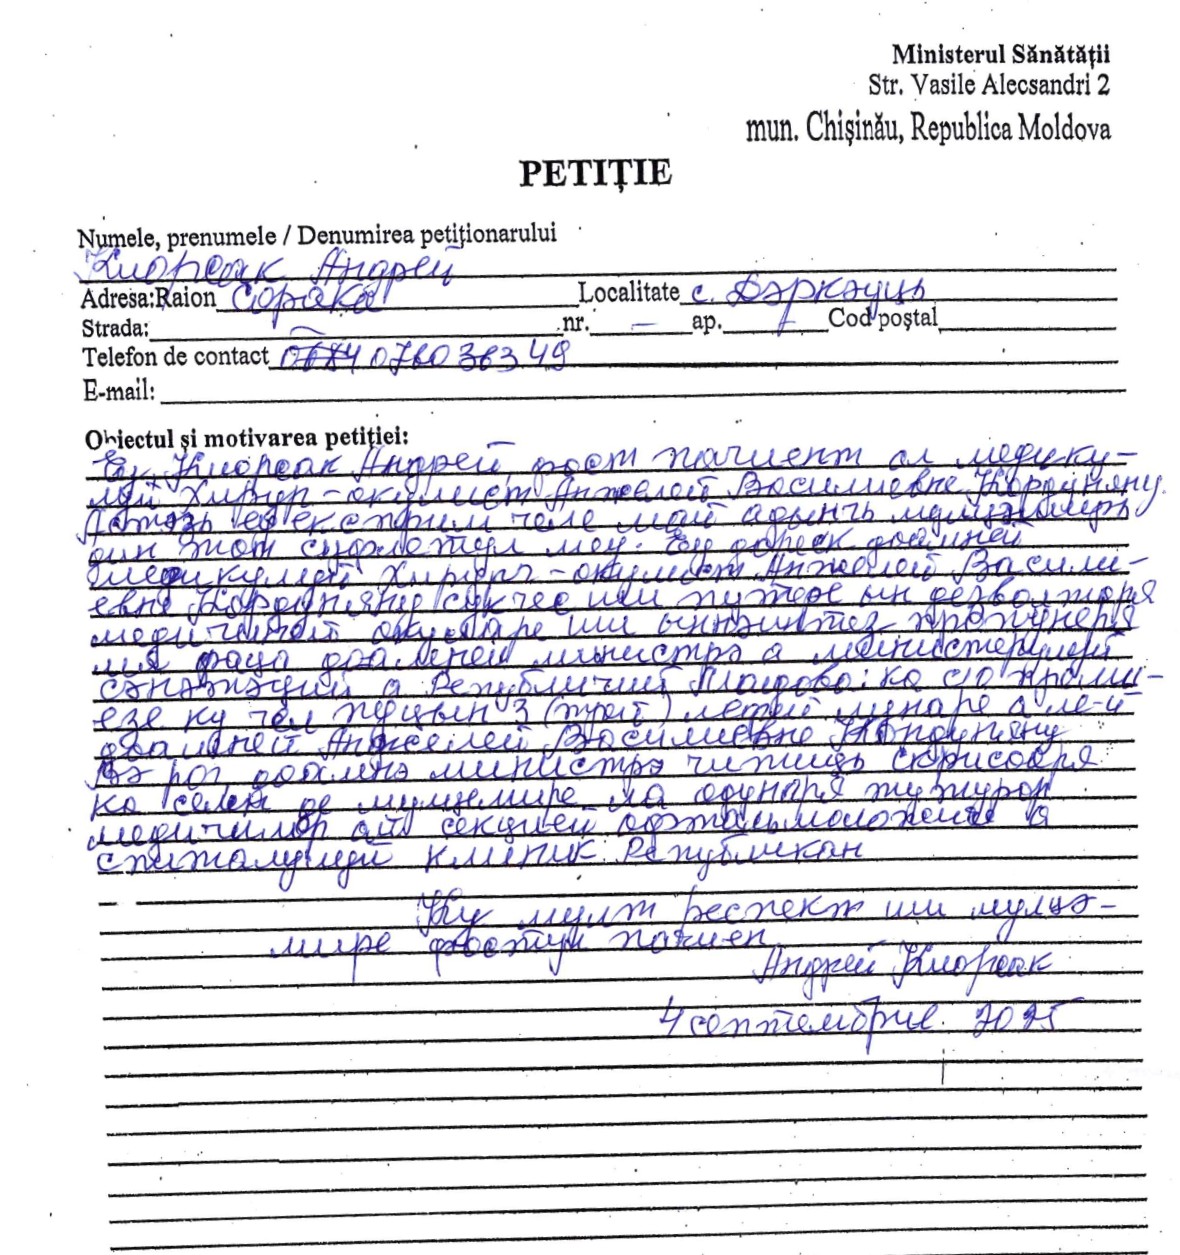 Ministerul Sănătății
Str. Vasile Alecsandri 2
mun. Chișinău, Republica Moldova
PETIȚIE
Numele, prenumele / Denumirea petiționarului
Киорсак Андрей
Adresa:Raion Сорока Localitate с. Дэркэуць
Strada: — nr. — ap. Cod poștal
Telefon de contact 076036349
E-mail:
Obiectul și motivarea petiției:
Еу, Киорсак Андрей, фост пачиент ал медику-
луй Хирург-окулист Анжелей Василиевне Кордуняну.
Астэзь еу експрим челе май адынчь мулцумирь
дин тот суфлетул меу. Еу дореск доамней
медикулуй Хирург-окулист Анжелей Васили-
евне Кордуняну сукчес ши путере ын дезволтаря
медичиней окуларе ши ынаинтез пропунеря
ын фаца доамней министрэ а министерулуй
сэнэтэций а Републичий Молдова: ка с-о преми-
езе ку чел пуцын 3 (трей) лефий лунаре а ле-й
доамней Анжелей Василиевне Кордуняну
Вэ рог доамнэ министрэ читиць скрисоаря
ка семн де мулцумире ла адунаря тутурор
медичилор ай секцией офталмоложие а
спиталулуй клиник Републикан
Ку мулт респект ши мулцэ-
мире фостул пациен
Андрей Киорсак
4 септембрие. 2025